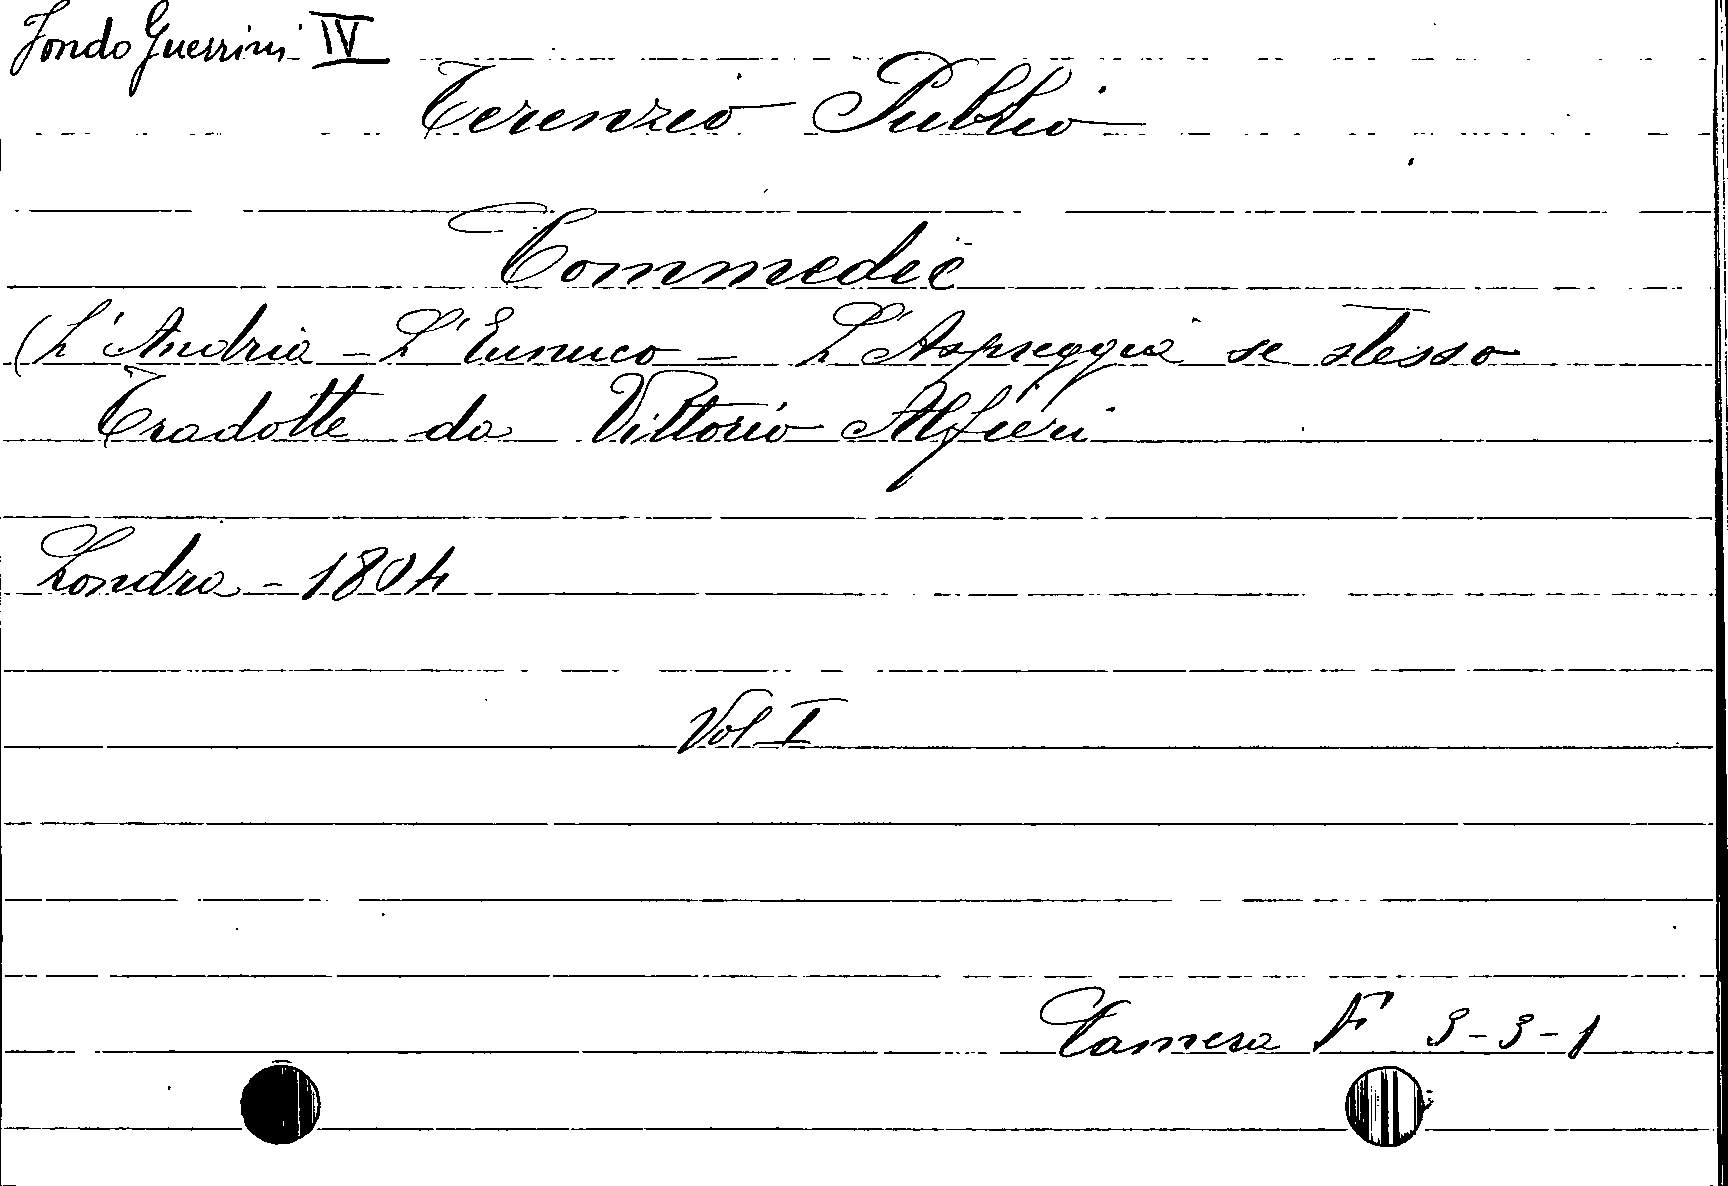 Fondo Guerrini IV
Terenzio Publio
Commedie
(L'Andria - L'Eunuco - L'Aspreggia se stesso
Tradotte da Vittorio Alfieri
Londra - 1804
Vol I
Camera F 3-3-1